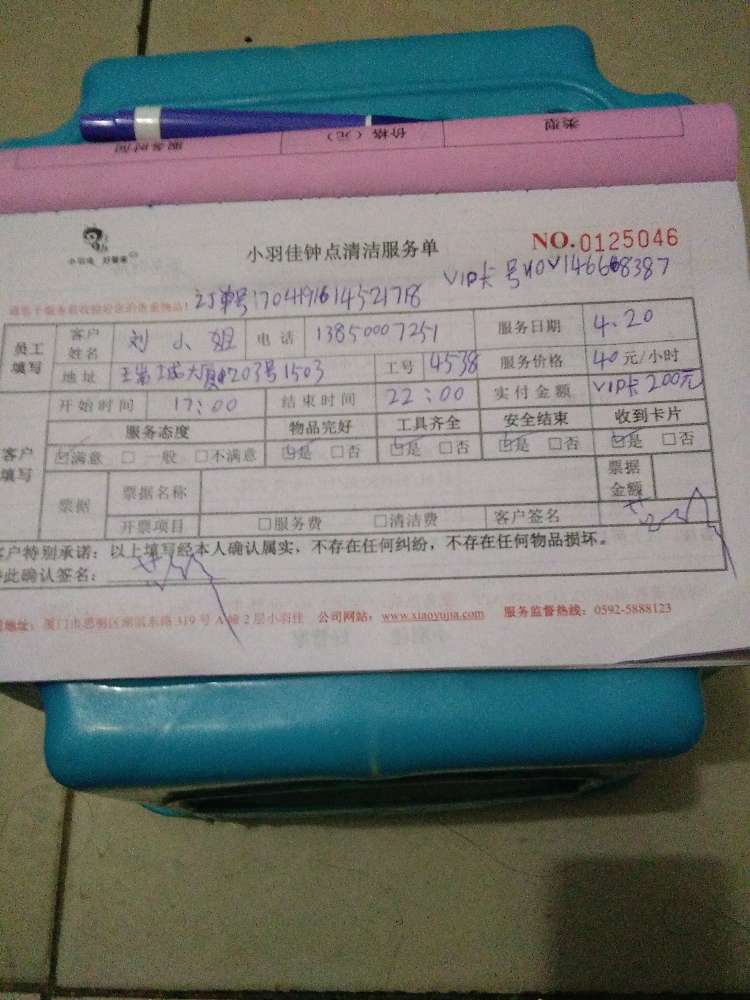 服务时间 价格（元） 类型
小羽佳 好管家
小羽佳钟点清洁服务单 NO.0125046
VIP卡号NOV146668387
订单号1704191614521718
员工填写 客户姓名 刘小姐 电话 13850007251 服务日期 4.20
地址 203号1503 工号 4538 服务价格 40元/小时
开始时间 17:00 结束时间 22:00 实付金额 VIP卡200元
客户填写 服务态度 物品完好 工具齐全 安全结束 收到卡片
☑满意 □一般 □不满意 ☑是 □否 ☑是 □否 ☑是 □否 ☑是 □否
票据 票据名称 票据金额
开票项目 □服务费 □清洁费 客户签名
客户特别承诺：以上填写经本人确认属实，不存在任何纠纷，不存在任何物品损坏。
此确认签名：
地址：厦门市思明区湖滨东路319号A幢2层小羽佳 公司网站：www.xiaoyujia.com 服务监督热线：0592-5888123